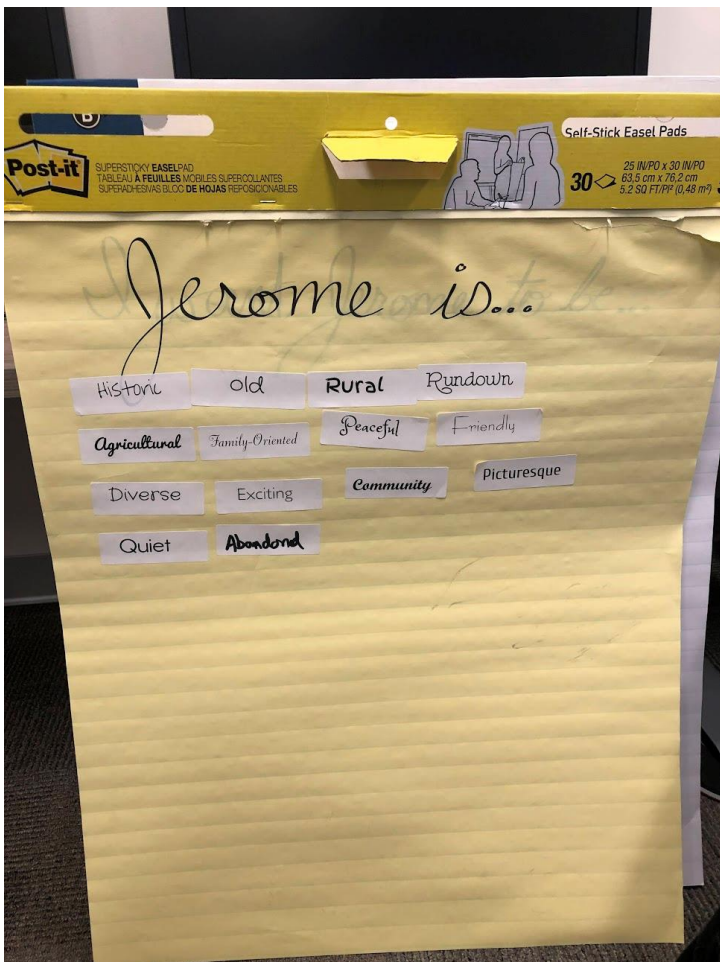 B
Self-Stick Easel Pads
Post-it
SUPERSTICKY EASELPAD
TABLEAU À FEUILLES MOBILES SUPERCOLLANTES
SUPERADHESIVAS BLOC DE HOJAS REPOSICIONABLES
30
25 IN/PO x 30 IN/PO
63,5 cm x 76,2 cm
5.2 SQ FT/PI² (0,48 m²)
Jerome is...
Historic Old Rural Rundown
Agricultural Family-Oriented Peaceful Friendly
Diverse Exciting Community Picturesque
Quiet Abandond